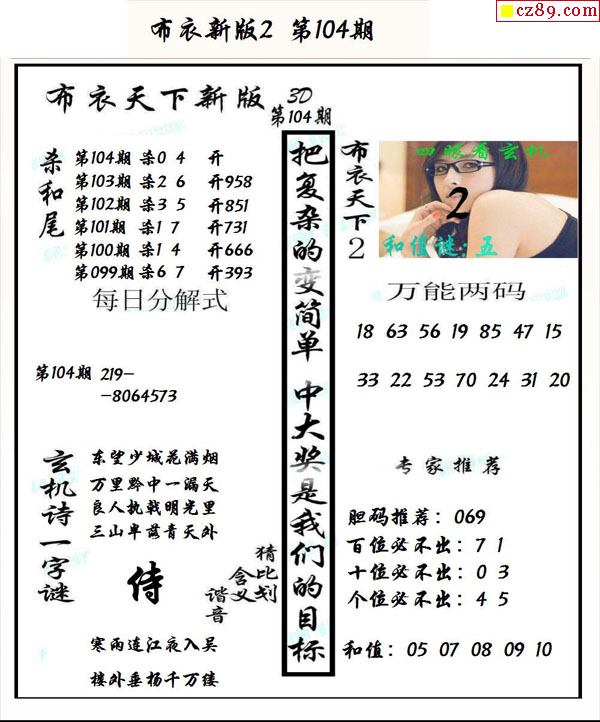 cz89.com
布衣新版2 第104期
布衣天下新版 3D
第104期
杀和尾
第104期 杀0 4 开
第103期 杀2 6 开958
第102期 杀3 5 开851
第101期 杀1 7 开731
第100期 杀1 4 开666
第099期 杀6 7 开393
每日分解式
第104期 219-
-8064573
玄机诗一字谜
东望少城花满烟
万里黔中一漏天
良人执戟明光里
三山半落青天外
侍
猜比划
含义
谐音
寒雨连江夜入吴
楼外垂杨千万缕
把复杂的变简单 中大奖是我们的目标
布衣天下2
四眼看玄机
2
和值谜:五
万能两码
18 63 56 19 85 47 15
33 22 53 70 24 31 20
专家推荐
胆码推荐:069
百位必不出:7 1
十位必不出:0 3
个位必不出:4 5
和值:05 07 08 09 10